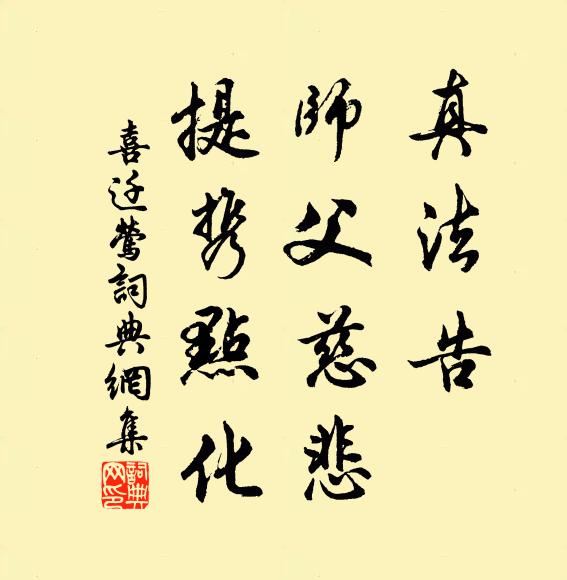 真法告
師父慈悲
提携點化
喜迁鶯詞典網集
詞典网印